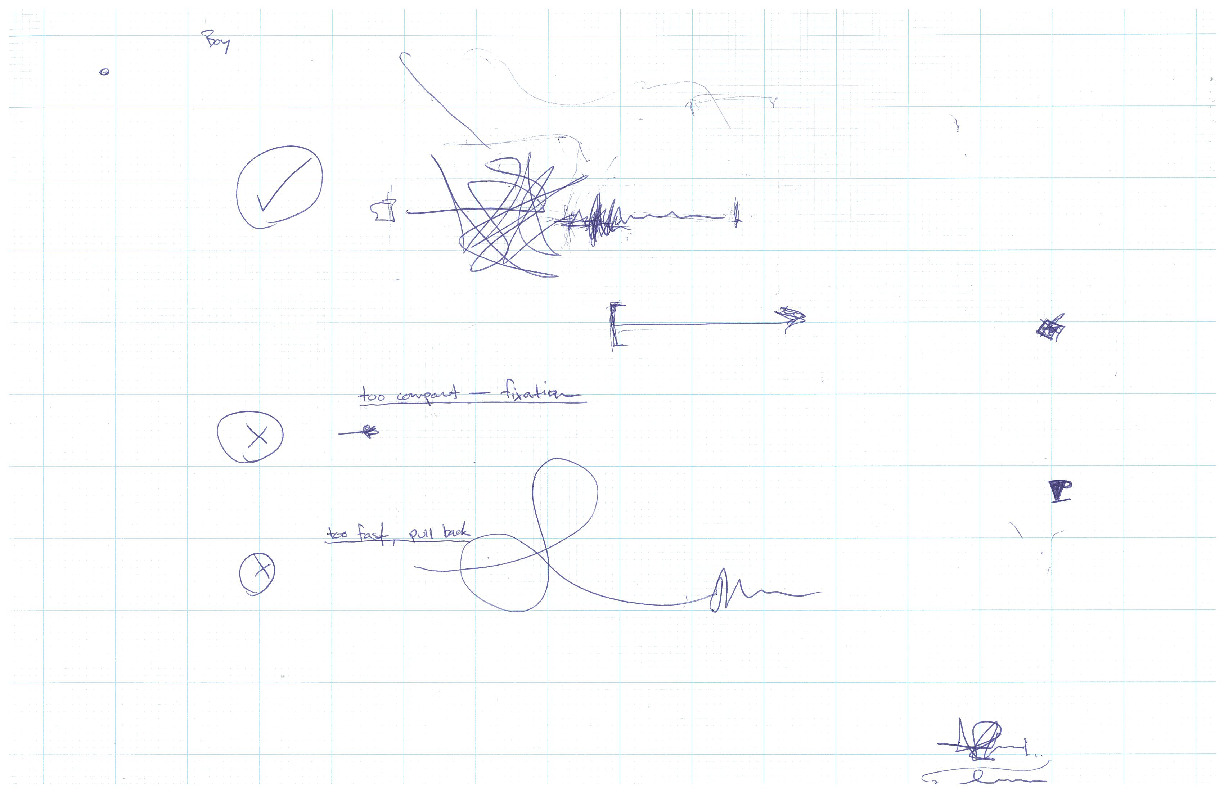 Boy
too compact — fixation
too fast, pull back